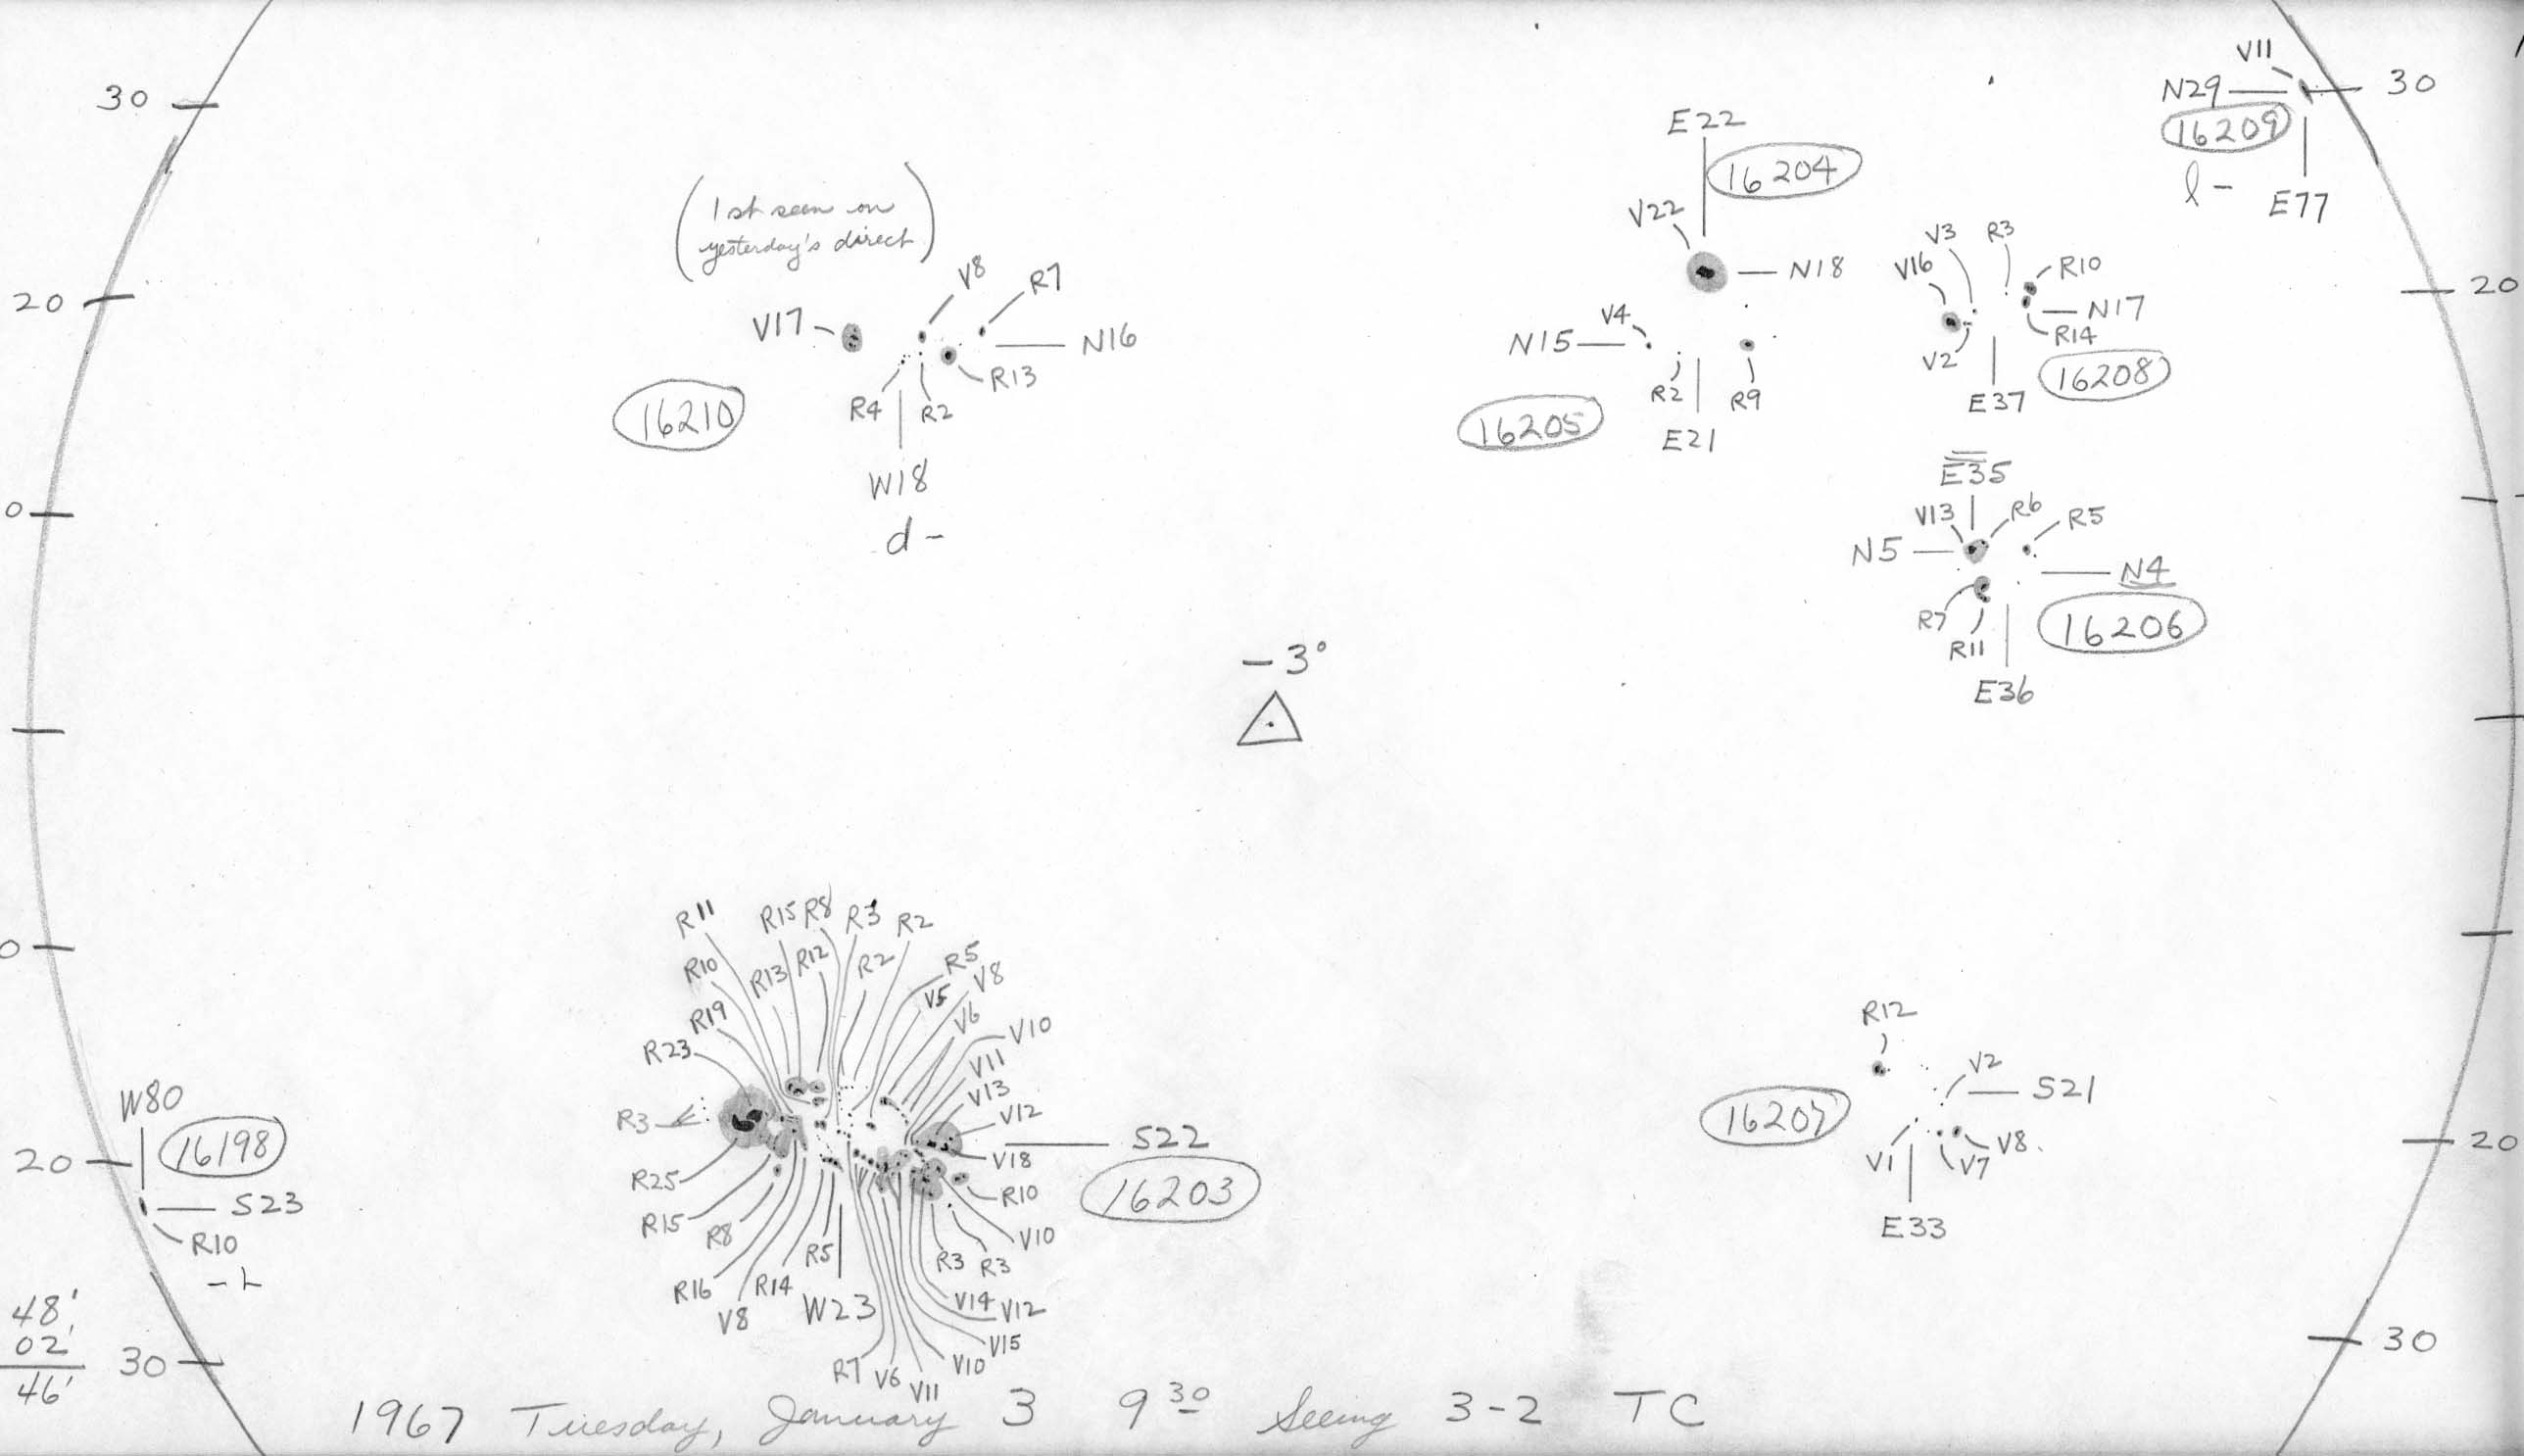 30
V11
N29
30
16209
l -
E77
E22
16204
V22
N18
(1st seen on
yesterday's direct)
V8
R7
V17
N16
R4
R2
R13
16210
W18
d -
20
V3
R3
V16
R10
20
N15
V4
N17
R14
V2
R2
R9
16208
E37
16205
E21
E35
V13
R6
R5
N5
N4
R7
R11
16206
E36
0
-3°
0
R11
R15
R8
R3
R2
R10
R13
R12
R2
R5
V5
V8
R19
V6
V10
R23
V11
V13
R3
V12
S22
V18
R25
R10
16203
R15
R8
R5
V10
R3
R3
R16
R14
V14
V12
V8
W23
V15
R7
V6
V11
V10
R12
V2
S21
16207
V1
V7
V8
E33
20
W80
16198
20
S23
R10
48'
02'
46'
30
30
1967 Tuesday, January 3 9 30 Seeing 3-2 TC